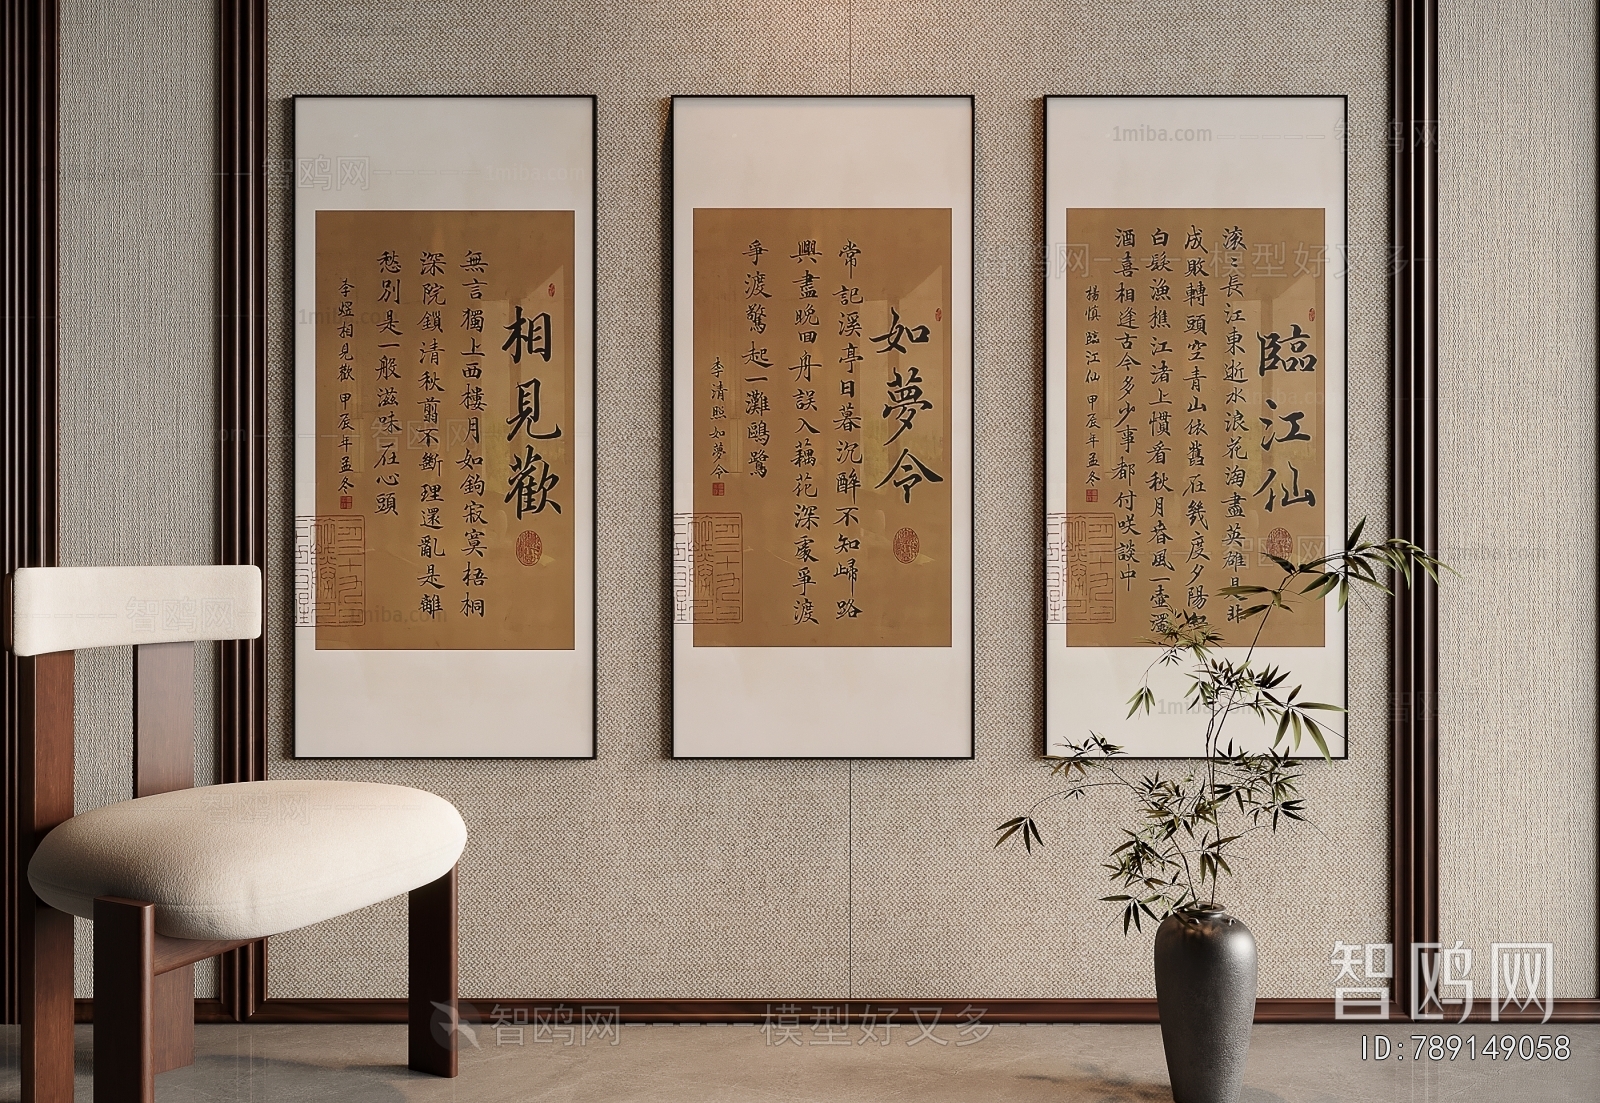 相見歡
無言獨上西樓月如鉤寂寞梧桐
深院鎖清秋剪不斷理還亂是離
愁別是一般滋味在心頭
李煜相見歡 甲辰年孟冬
如夢令
常記溪亭日暮沉醉不知歸路
興盡晚回舟誤入藕花深處爭渡
爭渡驚起一灘鷗鷺
李清照如夢令
臨江仙
滚〻長江東逝水浪花淘盡英雄是非
成敗轉頭空青山依舊在幾度夕陽紅
白髮漁樵江渚上慣看秋月春風一壺濁
酒喜相逢古今多少事都付咲談中
楊慎 臨江仙 甲辰年孟冬
1miba.com
智鸥网
模型好又多
智鸥网
ID:789149058